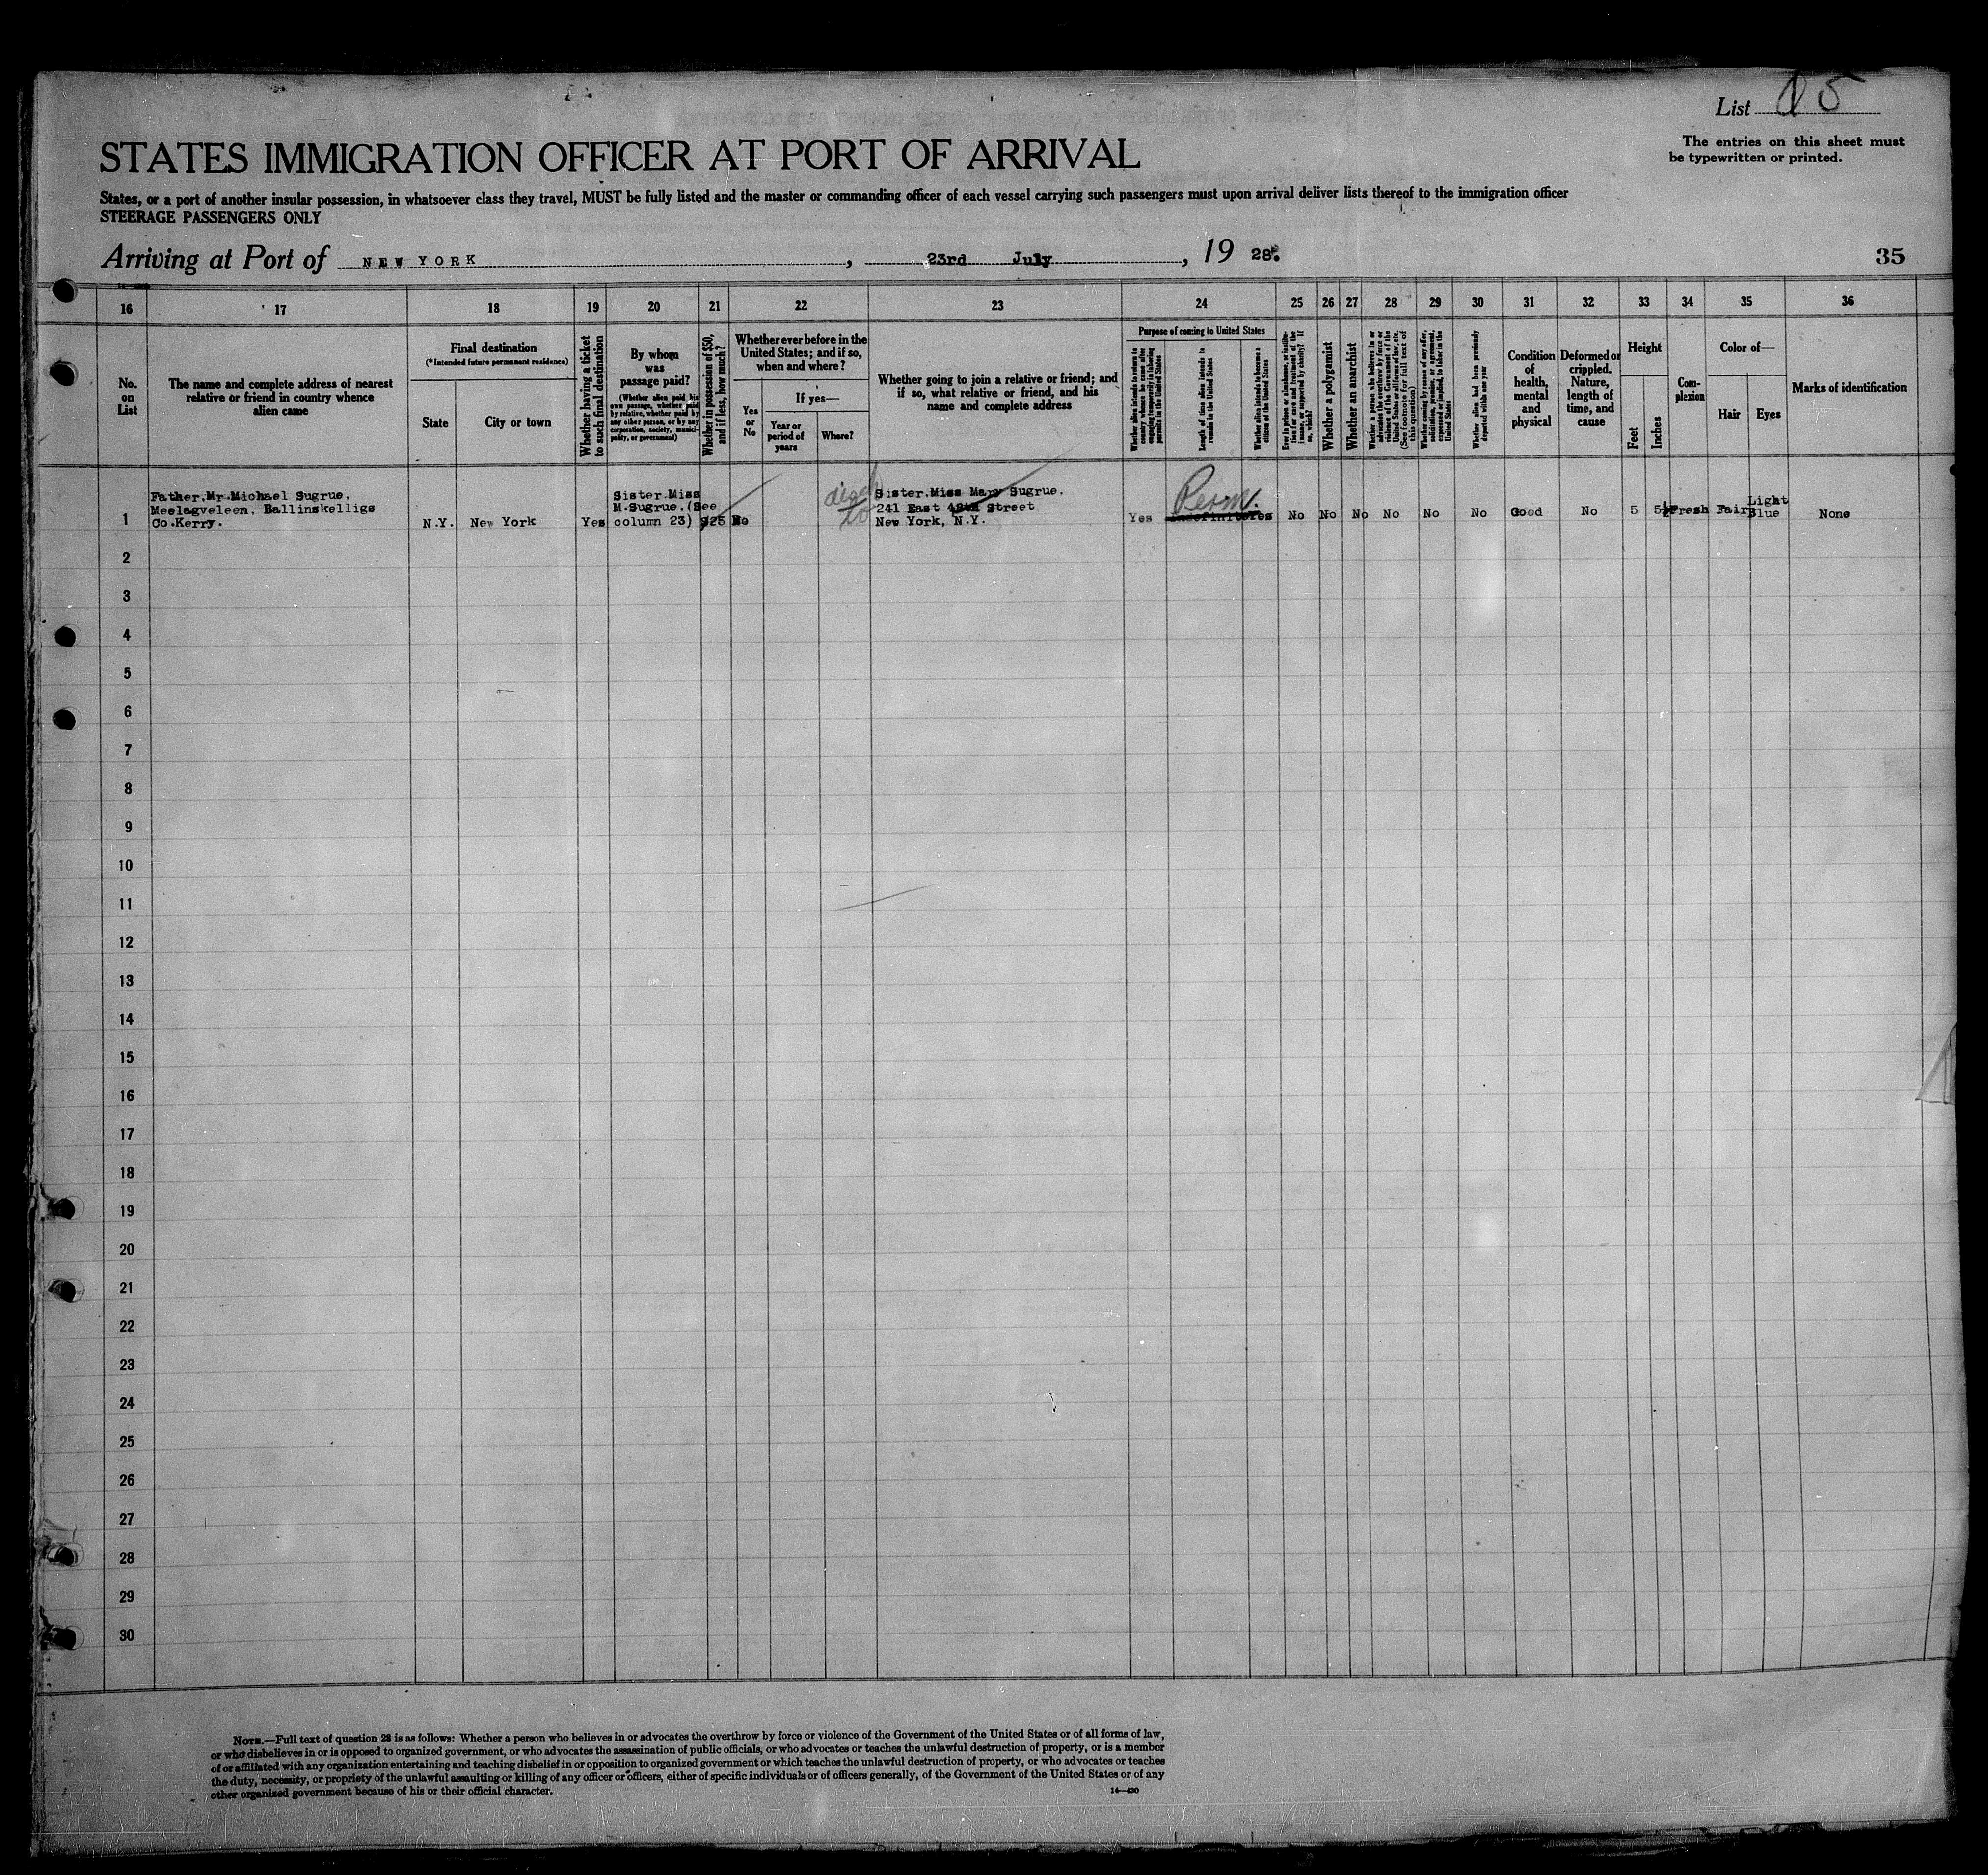 List 15
The entries on this sheet must
be typewritten or printed.
STATES IMMIGRATION OFFICER AT PORT OF ARRIVAL
States, or a port of another insular possession, in whatsoever class they travel, MUST be fully listed and the master or commanding officer of each vessel carrying such passengers must upon arrival deliver lists thereof to the immigration officer
STEERAGE PASSENGERS ONLY
Arriving at Port of NEW YORK, 23rd July, 19 28.
35
16 17 18 19 20 21 22 23 24 25 26 27 28 29 30 31 32 33 34 35 36
No.
on
List
The name and complete address of nearest
relative or friend in country whence
alien came
Final destination
(*Intended future permanent residence)
State
City or town
Whether having a ticket
to such final destination
By whom
was
passage paid?
(Whether alien paid his
own passage, whether paid
by relative, whether paid by
any other person, or by any
corporation, society, munici-
pality, or government)
Whether in possession of $50,
and if less, how much?
Whether ever before in the
United States; and if so,
when and where?
Yes
or
No
If yes—
Year or
period of
years
Where?
Whether going to join a relative or friend; and
if so, what relative or friend, and his
name and complete address
Purpose of coming to United States
Whether alien intends to return to
country whence he came after
engaging temporarily in laboring
pursuits in the United States
Length of time alien intends to
remain in the United States
Whether alien intends to become a
citizen of the United States
Ever in prison or almshouse, or institu-
tion for care and treatment of the
insane, or supported by charity? If
so, which?
Whether a polygamist
Whether an anarchist
Whether a person who believes in or
advocates the overthrow by force or
violence of the Government of the
United States or all forms of law, etc.
(See footnote for full text of
this question)
Whether coming by reason of any offer,
solicitation, promise, or agreement,
expressed or implied, to labor in the
United States
Whether alien had been previously
deported within one year
Condition
of
health,
mental
and
physical
Deformed or
crippled.
Nature,
length of
time, and
cause
Height
Feet
Inches
Com-
plexion
Color of—
Hair
Eyes
Marks of identification
Father.Mr.Michael Sugrue,
Meelagveleen, Ballinskelligs
Co.Kerry.
1
N.Y.
New York
Yes
Sister.Miss
M.Sugrue,(See
column 23)
$25
No
Sister.Miss Mary Sugrue.
241 East 48th Street
New York, N.Y.
Yes
Perm.
Indefinite
Yes
No No No No No No Good No 5 5½ Fresh Fair
Light
Blue
None
2
3
4
5
6
7
8
9
10
11
12
13
14
15
16
17
18
19
20
21
22
23
24
25
26
27
28
29
30
NOTE.—Full text of question 28 is as follows: Whether a person who believes in or advocates the overthrow by force or violence of the Government of the United States or of all forms of law,
or who disbelieves in or is opposed to organized government, or who advocates the assassination of public officials, or who advocates or teaches the unlawful destruction of property, or is a member
of or affiliated with any organization entertaining and teaching disbelief in or opposition to organized government or which teaches the unlawful destruction of property, or who advocates or teaches
the duty, necessity, or propriety of the unlawful assaulting or killing of any officer or officers, either of specific individuals or of officers generally, of the Government of the United States or of any
other organized government because of his or their official character.
14—430